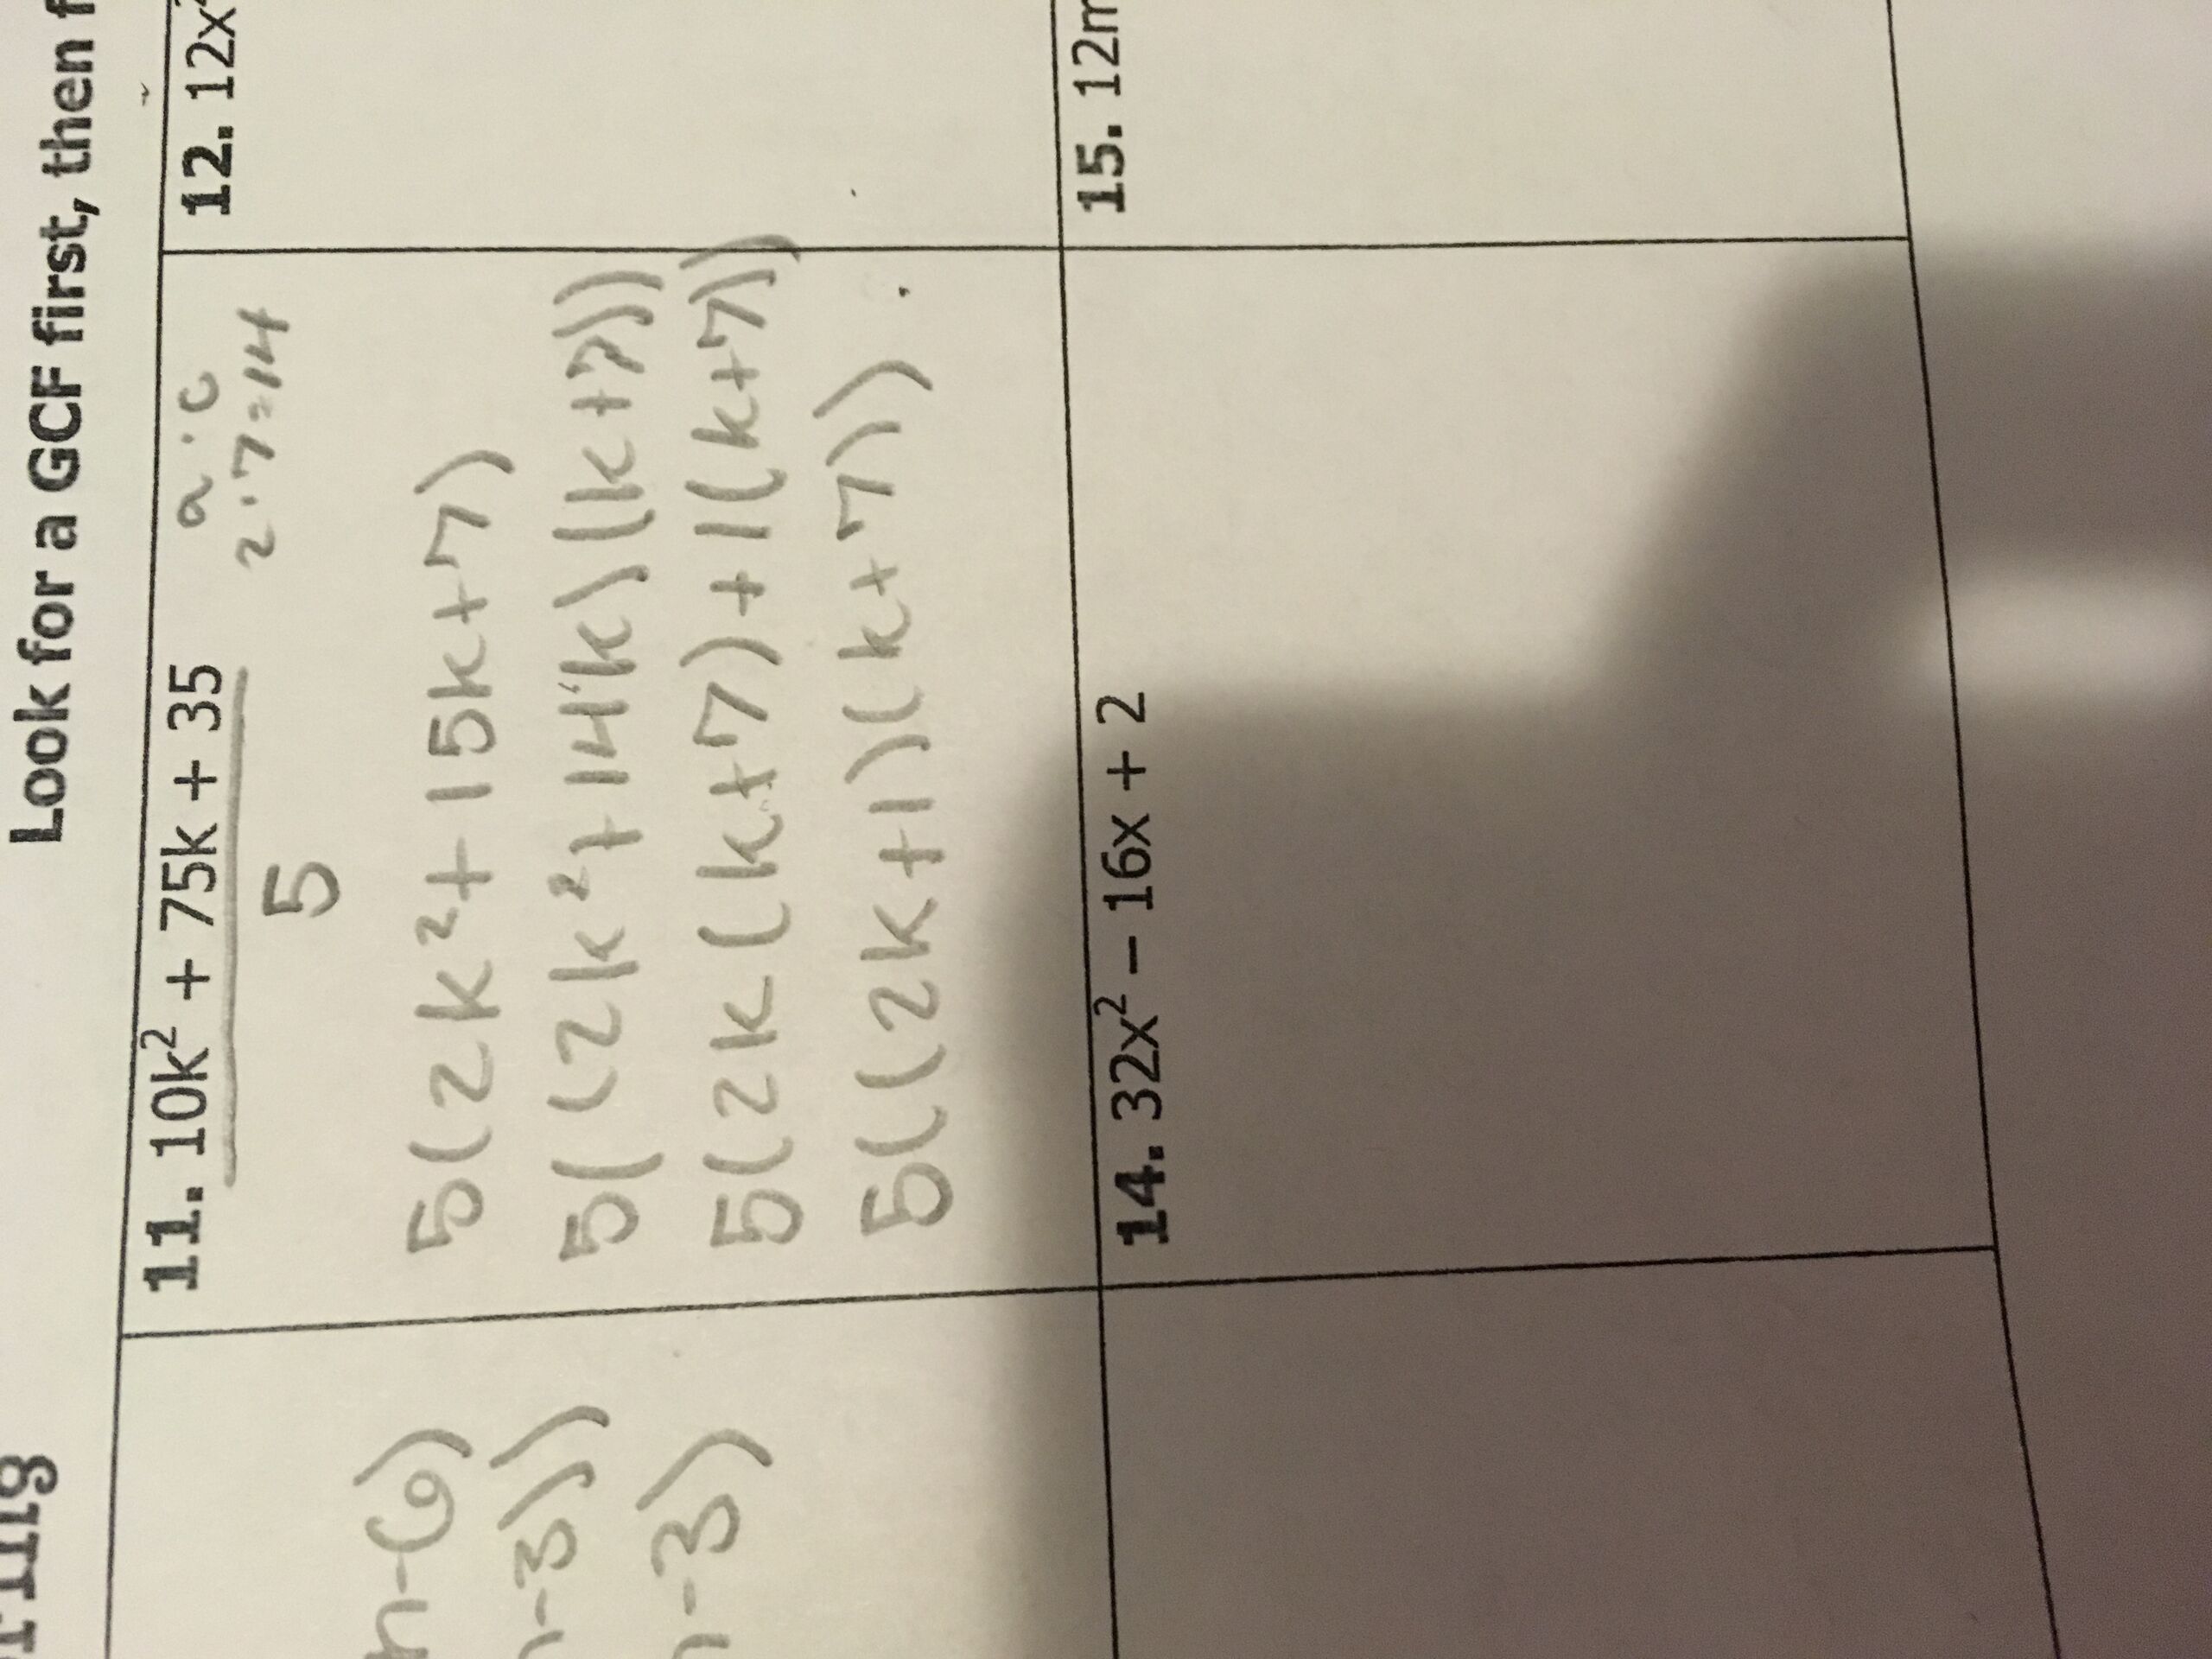 Look for a GCF first, then f
11. 10k² + 75k + 35
5
a · c
2 · 7 = 14
5(2k² + 15k + 7)
5((2k² + 14k)(k + 7))
5(2k(k + 7) + 1(k + 7))
5((2k + 1)(k + 7))
12. 12x²
14. 32x² – 16x + 2
15. 12m
n - 6)
n - 3))
n - 3)